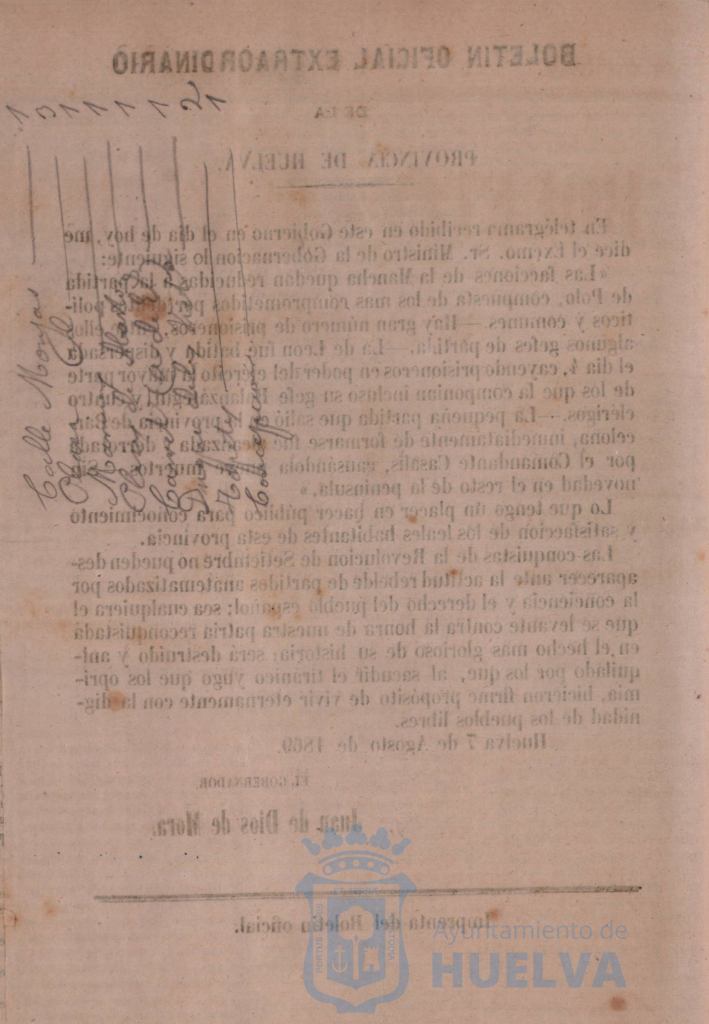 BOLETIN OFICIAL EXTRAORDINARIO
DE LA
PROVINCIA DE HUELVA.
En telégrama recibido en este Gobierno en el dia de hoy, me
dice el Excmo. Sr. Ministro de la Gobernacion lo siguiente:
«Las facciones de la Mancha quedan reducidas á la partida
de Polo, compuesta de los mas comprometidos por delitos poli-
ticos y comunes.—Hay gran número de prisioneros, entre ellos
algunos gefes de partida.—La de Leon fué batida y dispersada
el dia 4, cayendo prisioneros en poder del ejército la mayor parte
de los que la componian incluso su gefe Balanzátegui y cuatro
clérigos.—La pequeña partida que salió en la provincia de Bar-
celona, inmediatamente de formarse fué alcanzada y derrotada
por el Comandante Casalis, causándola muertos. Sin
novedad en el resto de la peninsula.»
Lo que tengo un placer en hacer público para conocimiento
y satisfaccion de los leales habitantes de esta provincia.
Las conquistas de la Revolucion de Setiembre no pueden des-
aparecer ante la actitud rebelde de partidos anatematizados por
la conciencia y el derecho del pueblo español; sea cualquiera el
que se levante contra la honra de nuestra patria reconquistada
en el hecho mas glorioso de su historia; será destruido y ani-
quilado por los que, al sacudir el tiránico yugo que los opri-
mia, hicieron firme propósito de vivir eternamente con la dig-
nidad de los pueblos libres.
Huelva 7 de Agosto de 1869.
EL GOBERNADOR,
Juan de Dios de Mora.
Imprenta del Boletin oficial.
Calle Monjas 1
1
Manuel 1
1
1
1
2
Concepcion 1
Ayuntamiento de
HUELVA